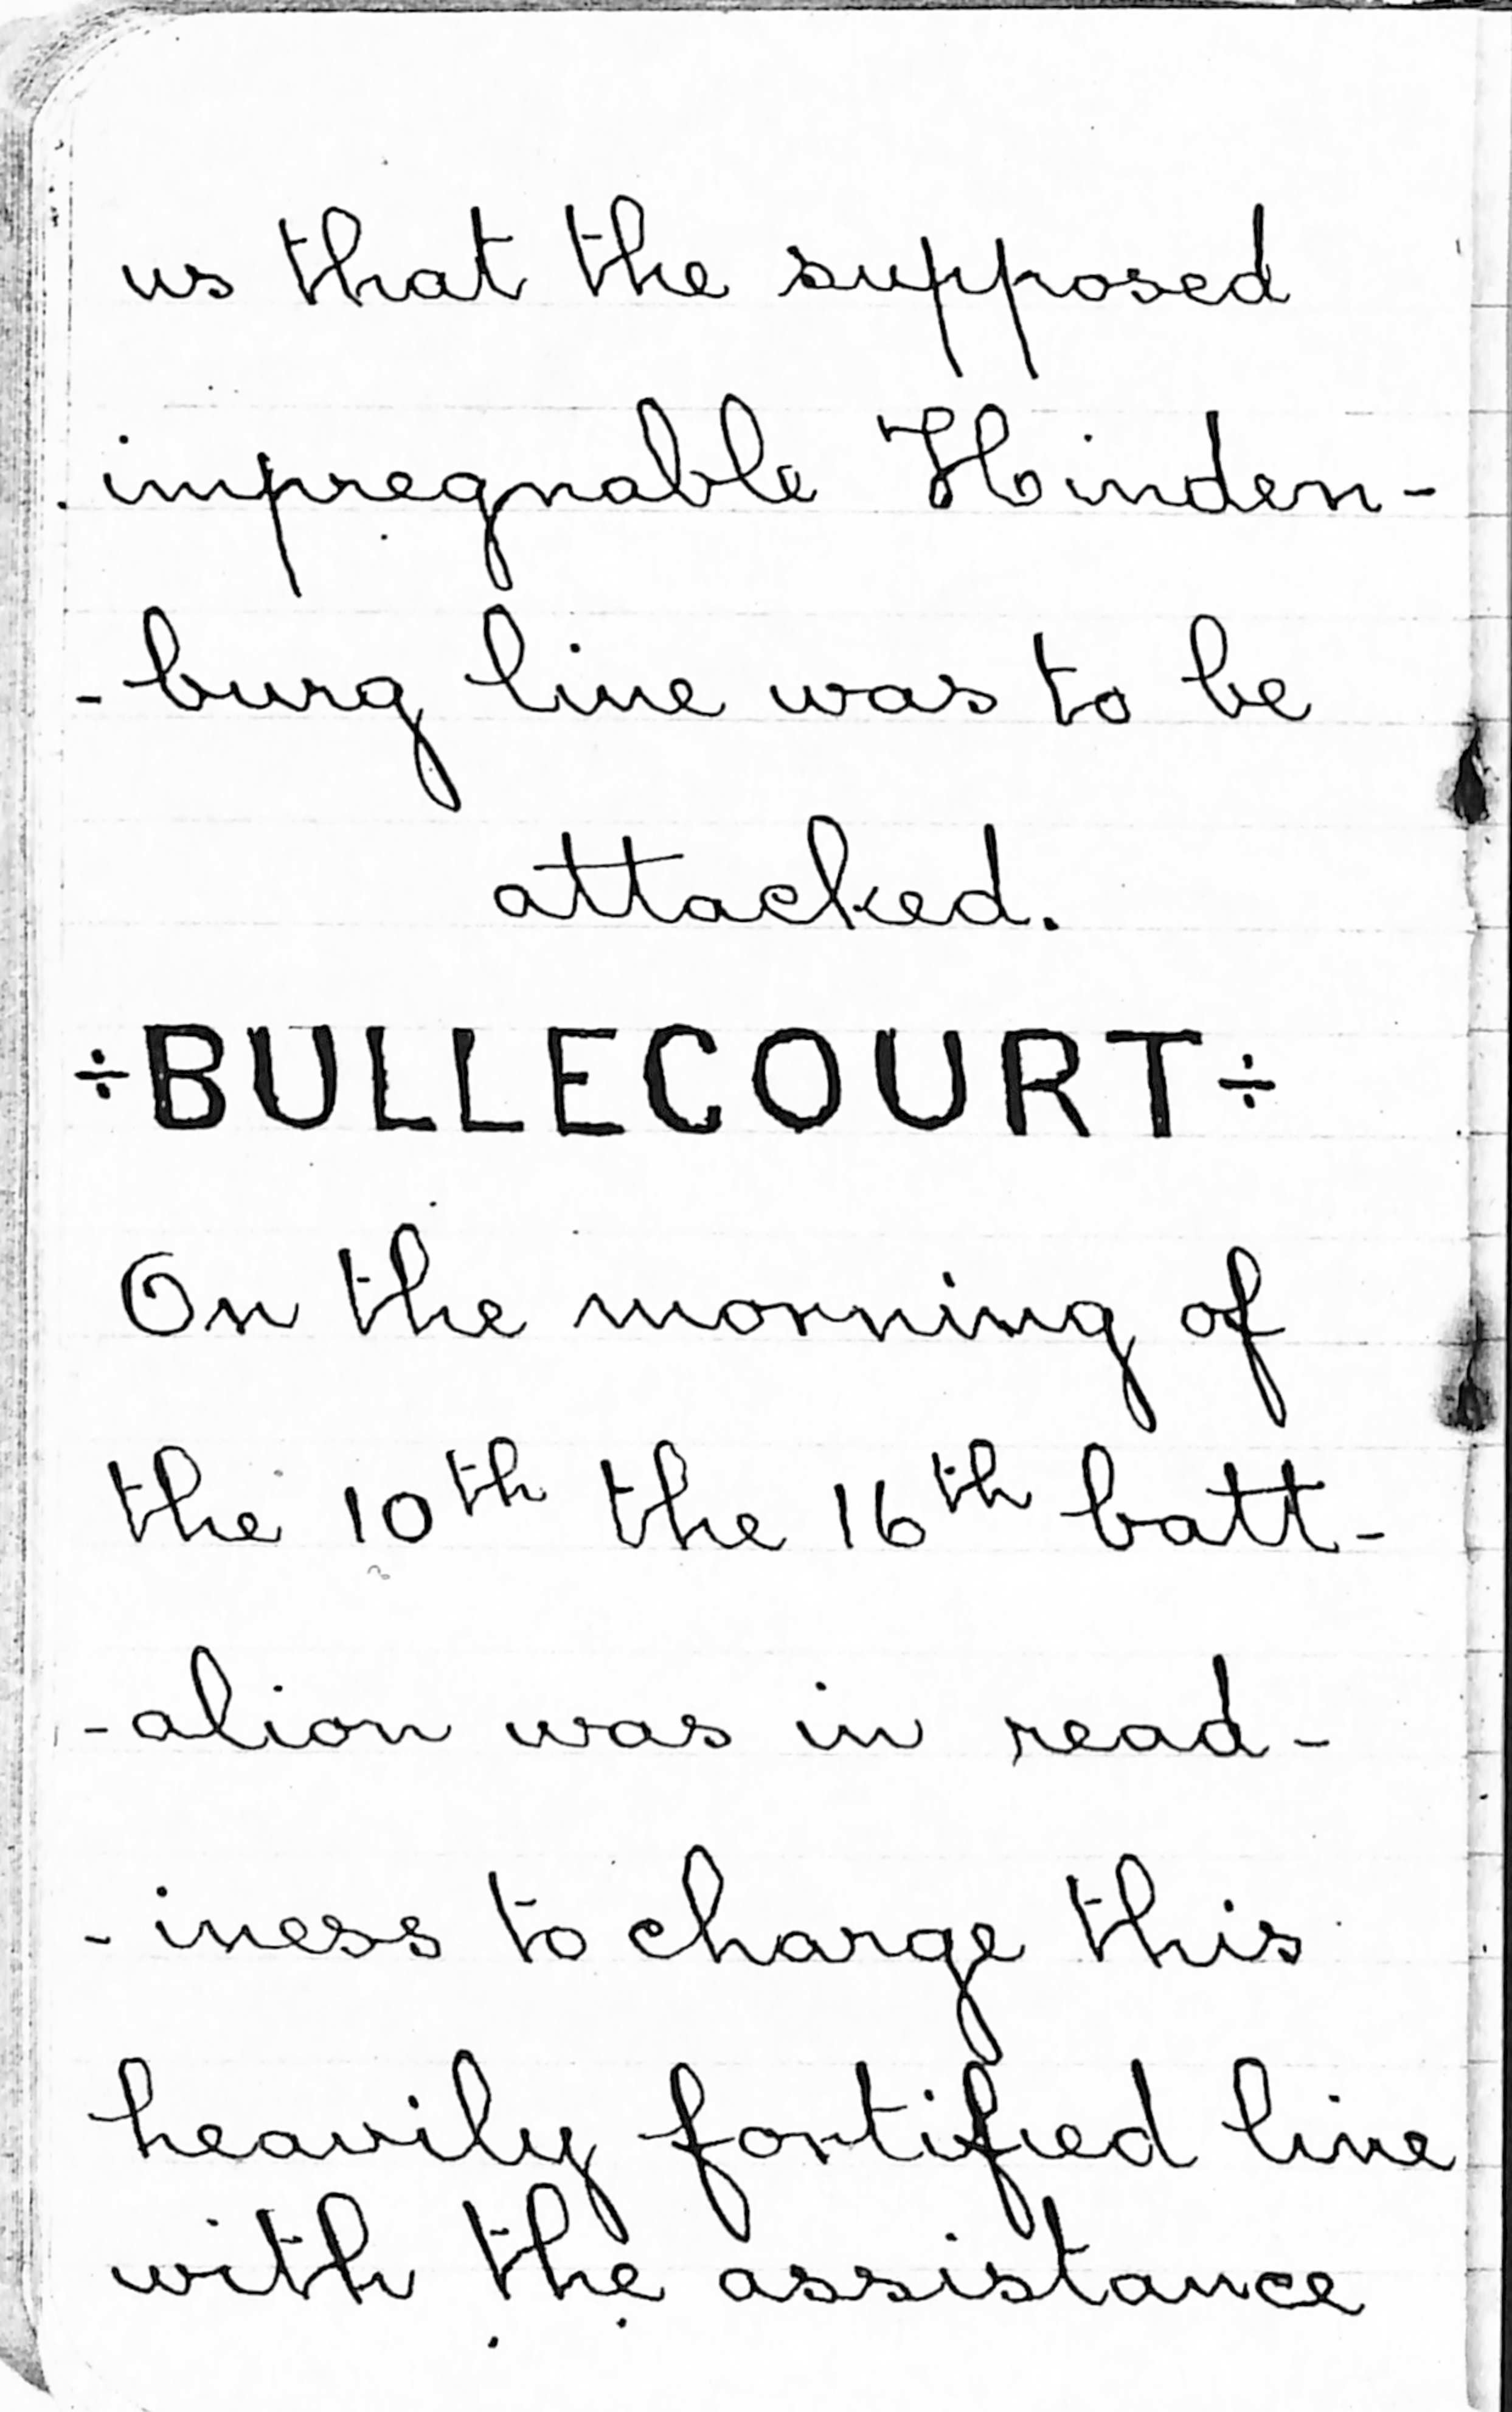 us that the supposed
impregnable Hinden-
-burg line was to be
attacked.
÷BULLECOURT÷
On the morning of
the 10th the 16th batt-
-alion was in read-
-iness to charge this
heavily fortified line
with the assistance